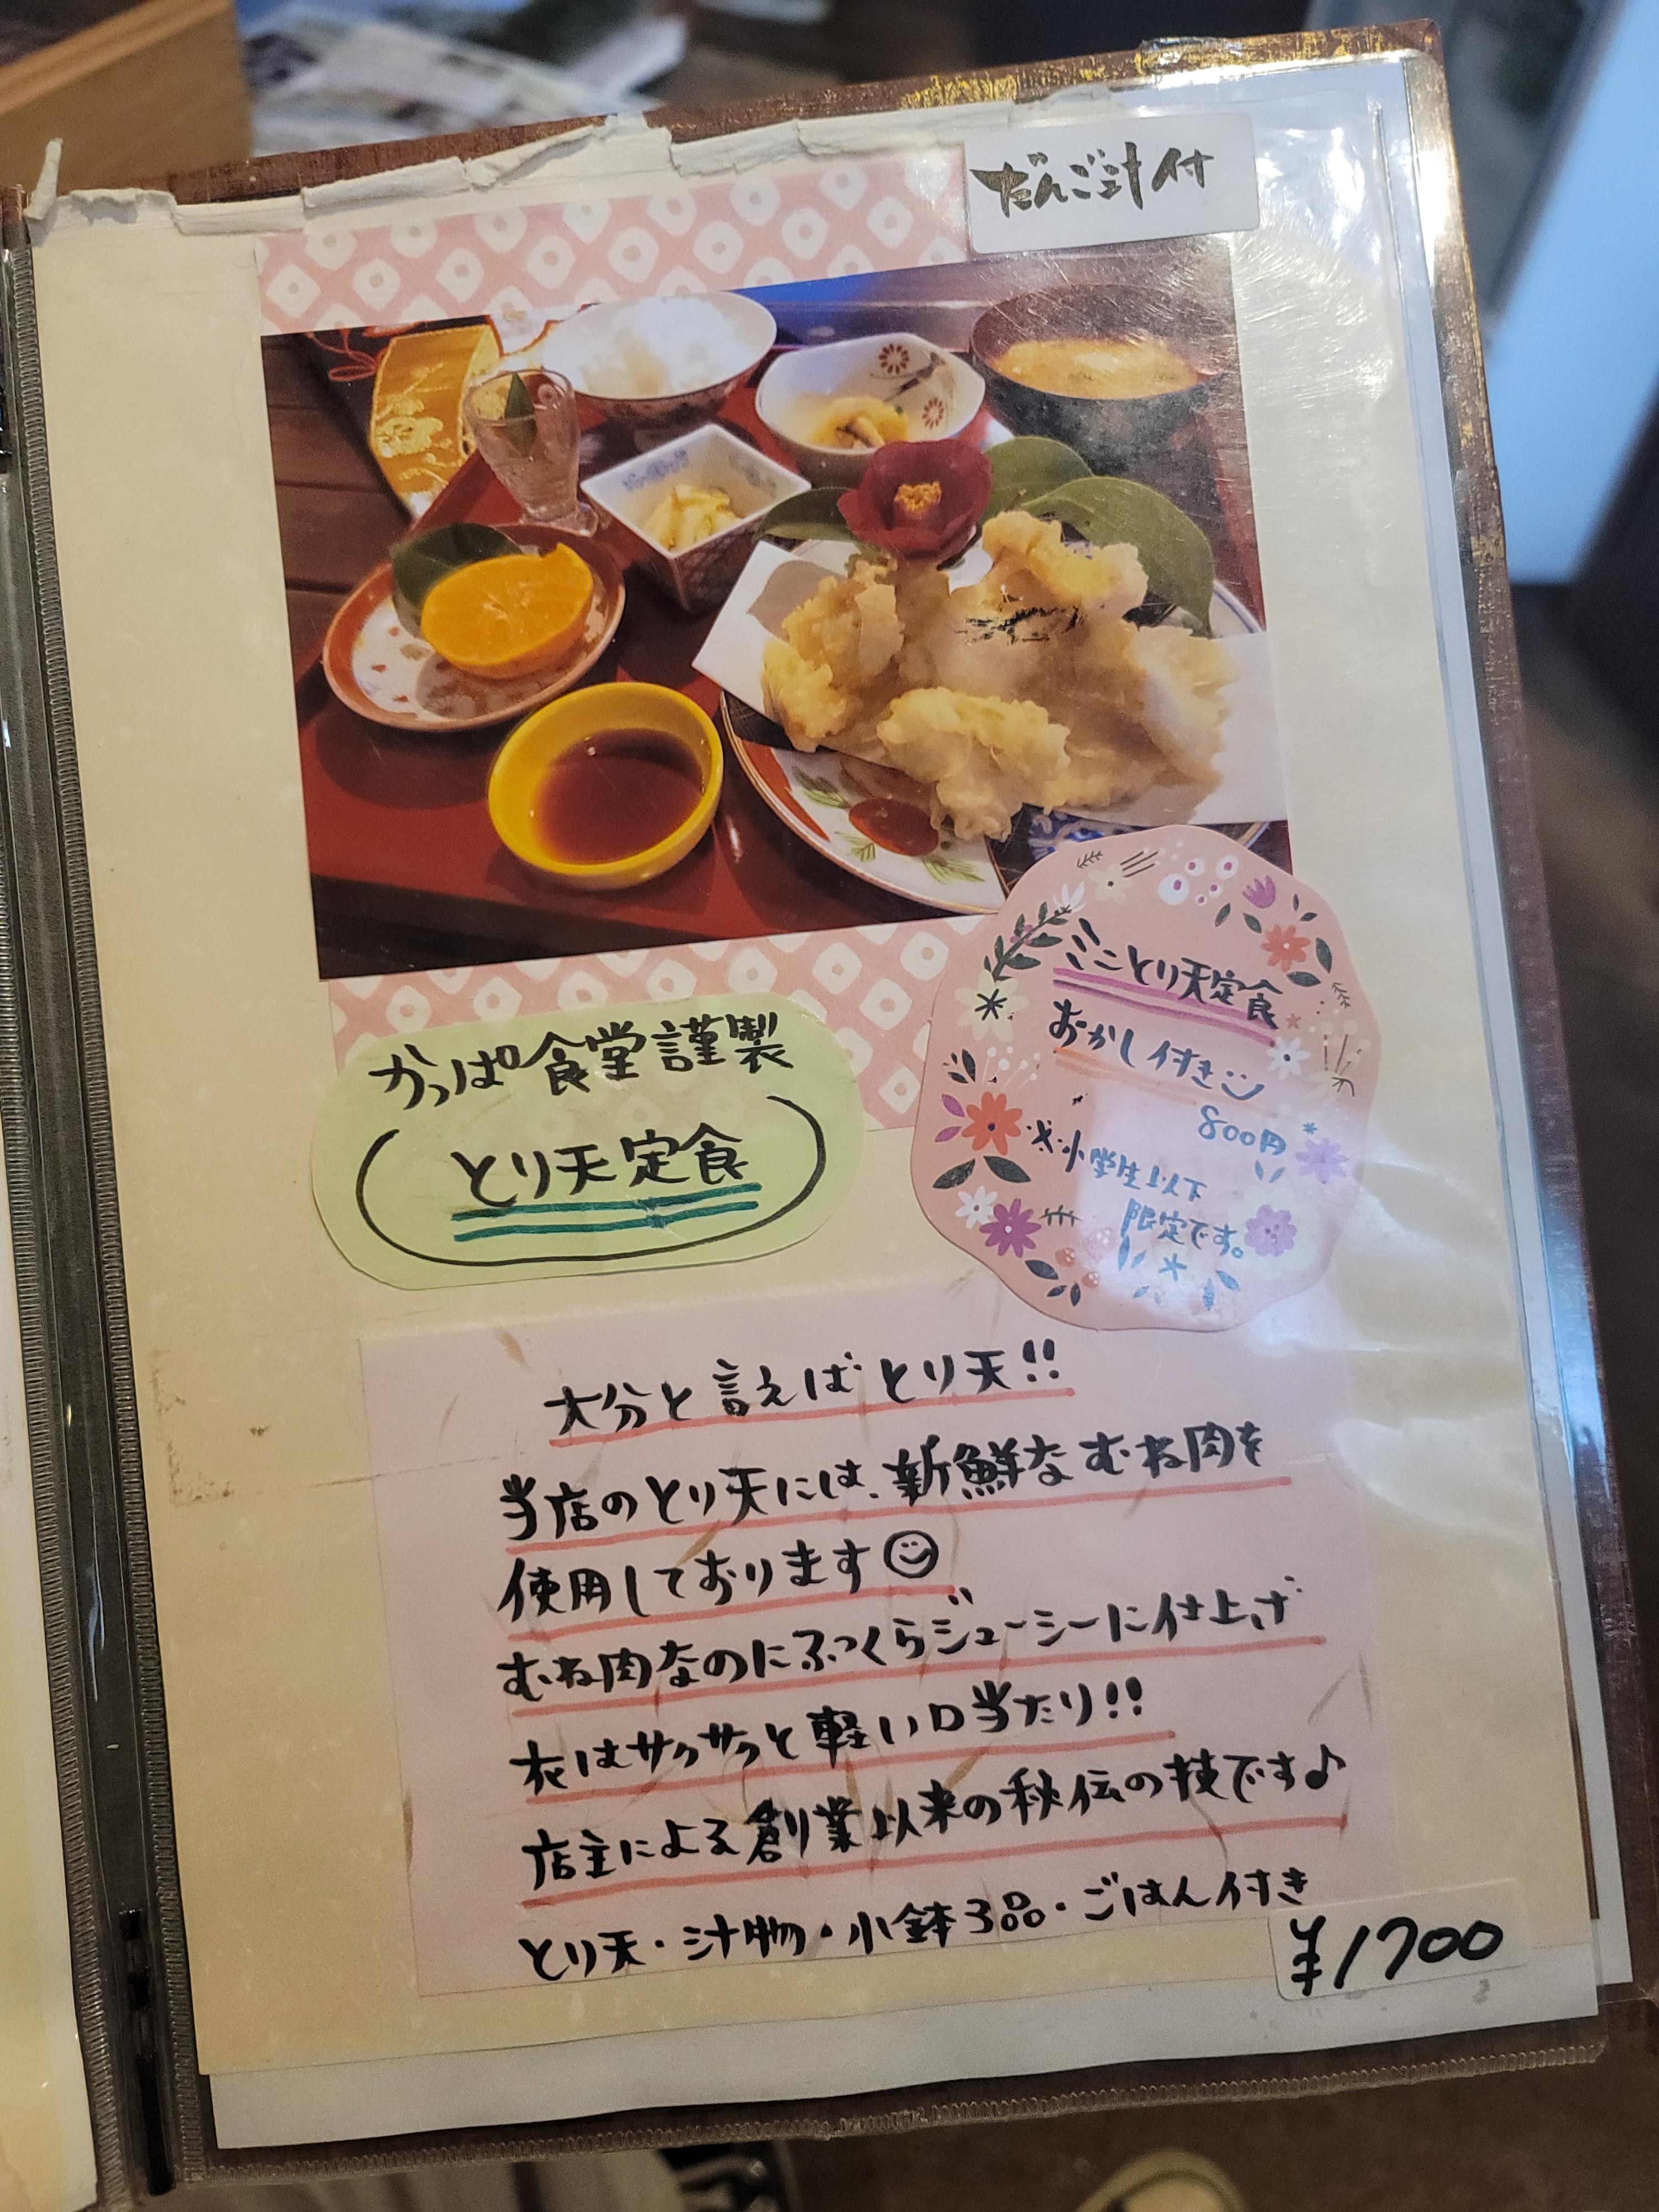 だんご汁付
かっぱ食堂謹製
とり天定食
ミニとり天定食
おかし付き
800円
※小学生以下
限定です。
大分と言えばとり天!!
当店のとり天には、新鮮なむね肉を
使用しております☺
むね肉なのにふっくらジューシーに仕上げ
衣はサクサクと軽い口当たり!!
店主による創業以来の秘伝の技です♪
とり天・汁物・小鉢3品・ごはん付き
¥1700